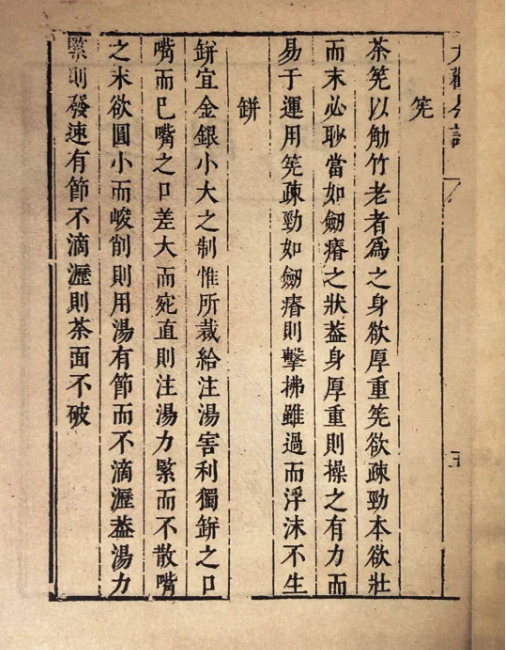 筅
茶筅以觔竹老者爲之身欲厚重筅欲疎勁本欲壯
而末必眇當如劒瘠之狀葢身厚重則操之有力而
易于運用筅疎勁如劒瘠則擊拂雖過而浮沫不生
缾
缾宜金銀小大之制惟所裁給注湯害利獨缾之口
嘴而已嘴之口差大而宛直則注湯力緊而不散嘴
之末欲圓小而峻削則用湯有節而不滴瀝葢湯力
緊則發速有節不滴瀝則茶面不破